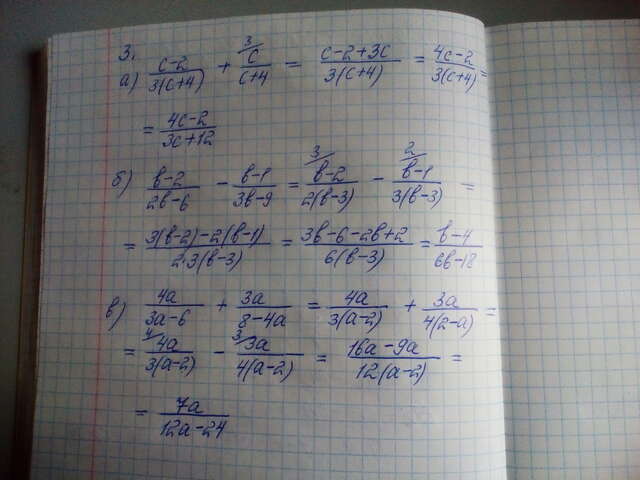 3.
а) (c-2)/(3(c+4)) + 3/ c/(c+4) = (c-2+3c)/(3(c+4)) = (4c-2)/(3(c+4)) =
= (4c-2)/(3c+12)
б) (в-2)/(2в-6) - (в-1)/(3в-9) = 3/ (в-2)/(2(в-3)) - 2/ (в-1)/(3(в-3)) =
= (3(в-2)-2(в-1))/(2·3(в-3)) = (3в-6-2в+2)/(6(в-3)) = (в-4)/(6в-18)
в) 4a/(3a-6) + 3a/(8-4a) = 4a/(3(a-2)) + 3a/(4(2-a)) =
= 4/ 4a/(3(a-2)) - 3/ 3a/(4(a-2)) = (16a-9a)/(12(a-2)) =
= 7a/(12a-24)